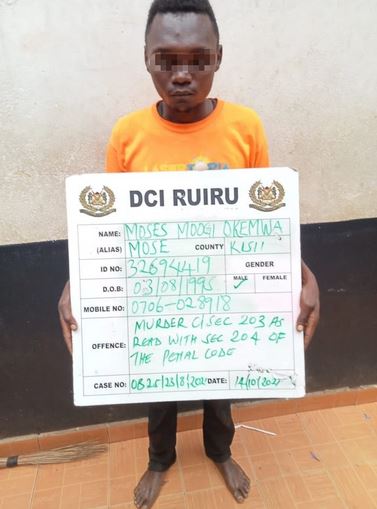 DCI RUIRU
NAME: MOSES MOOGI OKEMWA
(ALIAS) MOSE COUNTY KISII
ID NO: 32694419 GENDER
D.O.B: 03/08/1995 MALE ✓ FEMALE
MOBILE NO: 0706-028918
MURDER C/SEC 203 AS
OFFENCE: READ WITH SEC 204 OF
THE PENAL CODE
CASE NO: OB 25/23/8/202 DATE: 14/10/202